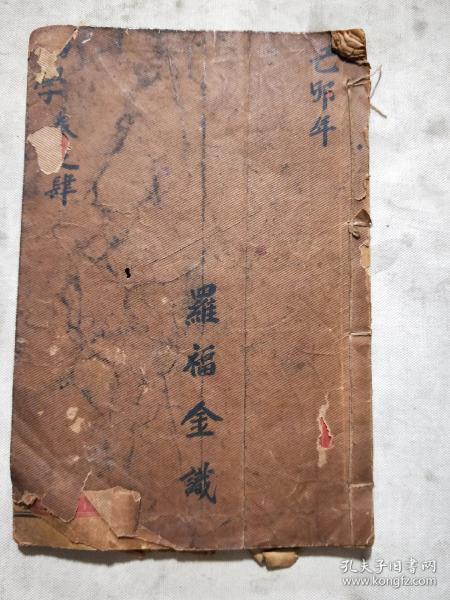 己卯年
羅福金識
字卷之肆
孔夫子旧书网
www.kongfz.com